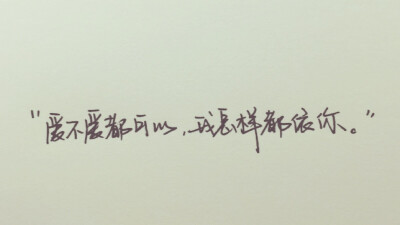 "爱不爱都可以,我怎样都依你。"